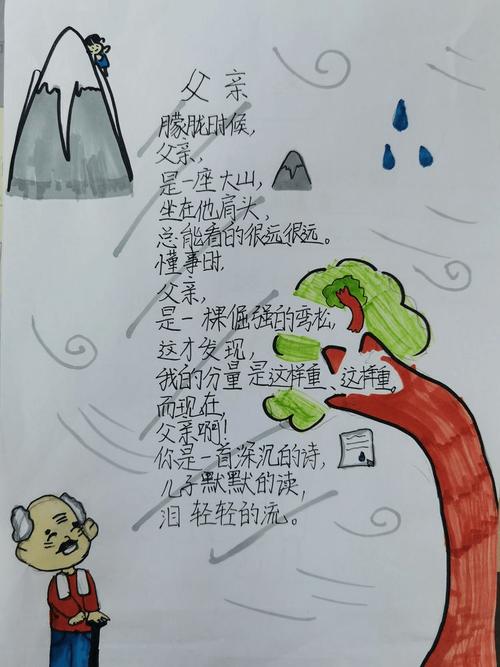 父亲
朦胧时候，
父亲，
是一座大山，
坐在他肩头，
总能看的很远很远。
懂事时，
父亲，
是一棵倔强的弯松，
这才发现，
我的分量是这样重、这样重。
而现在，
父亲啊！
你是一首深沉的诗，
儿子默默的读，
泪轻轻的流。